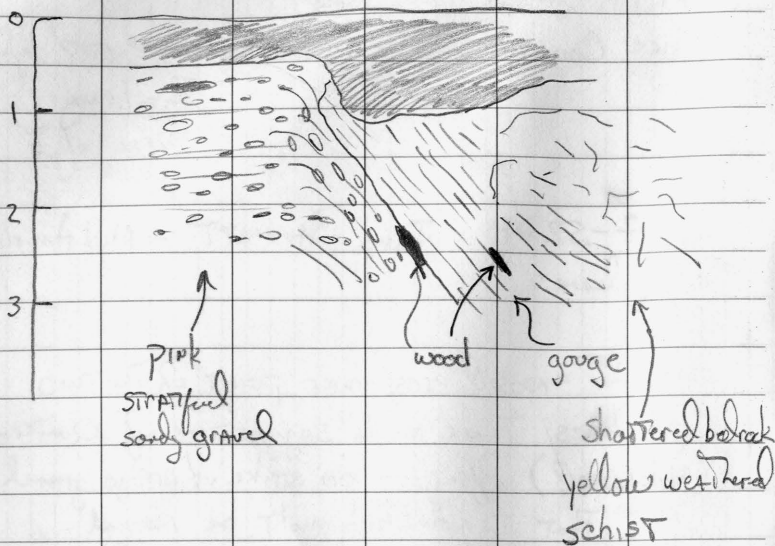 0
1
2
3
pink
stratified
sandy gravel
wood
gouge
Shattered bedrock
yellow weathered
schist